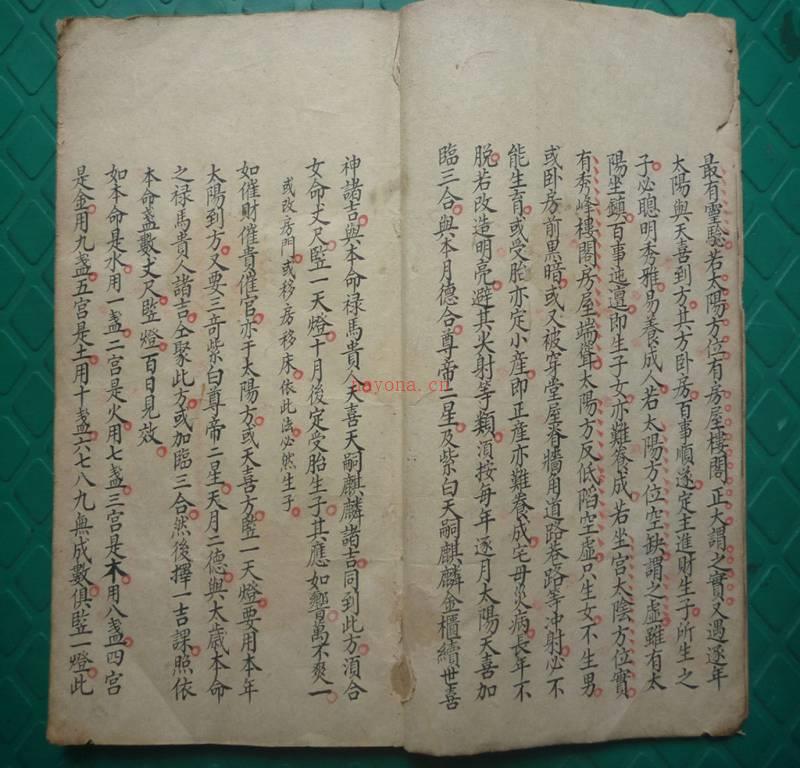 最有靈騐若太陽方位有房屋樓閣正大謂之實又遇逐年
太陽與天喜到方其方卧房百事順遂定主進財生子所生之
子必聰明秀雅易養成人若太陽方位空缺謂之虛雖有太
陽坐鎮百事迍邅即生子女亦難養成若坐宮太陰方位實
有秀峰樓閣房屋端聳太陽方反低陷空虛只生女不生男
或卧房前黑暗或又被穿堂屋脊牆角道路巷路等冲射必不
能生育或受胎亦定小產即正產亦難養成宅母災病長年不
脫若改造明亮避其尖射等類須按每年逐月太陽天喜加
臨三合與本月德合尊帝二星及紫白天嗣麒麟金櫃續世喜
神諸吉與本命禄馬貴人天喜天嗣麒麟諸吉同到此方湏合
女命丈尺竪一天燈十月後定受胎生子其應如響萬不爽一
或改房門或移房移床依此法必然生子
如催財催貴催官亦于太陽方或天喜方竪一天燈要用本年
太陽到方又要三奇紫白尊帝二星天月二德與太歲本命
之禄馬貴人諸吉仝聚此方或加臨三合然後擇一吉課照依
本命盞數丈尺竪燈百日見效
如本命是水用一盞二宮是火用七盞三宮是木用八盞四宮
是金用九盞五宮是土用十盞六七八九無成數俱竪一燈此
nayona.cn